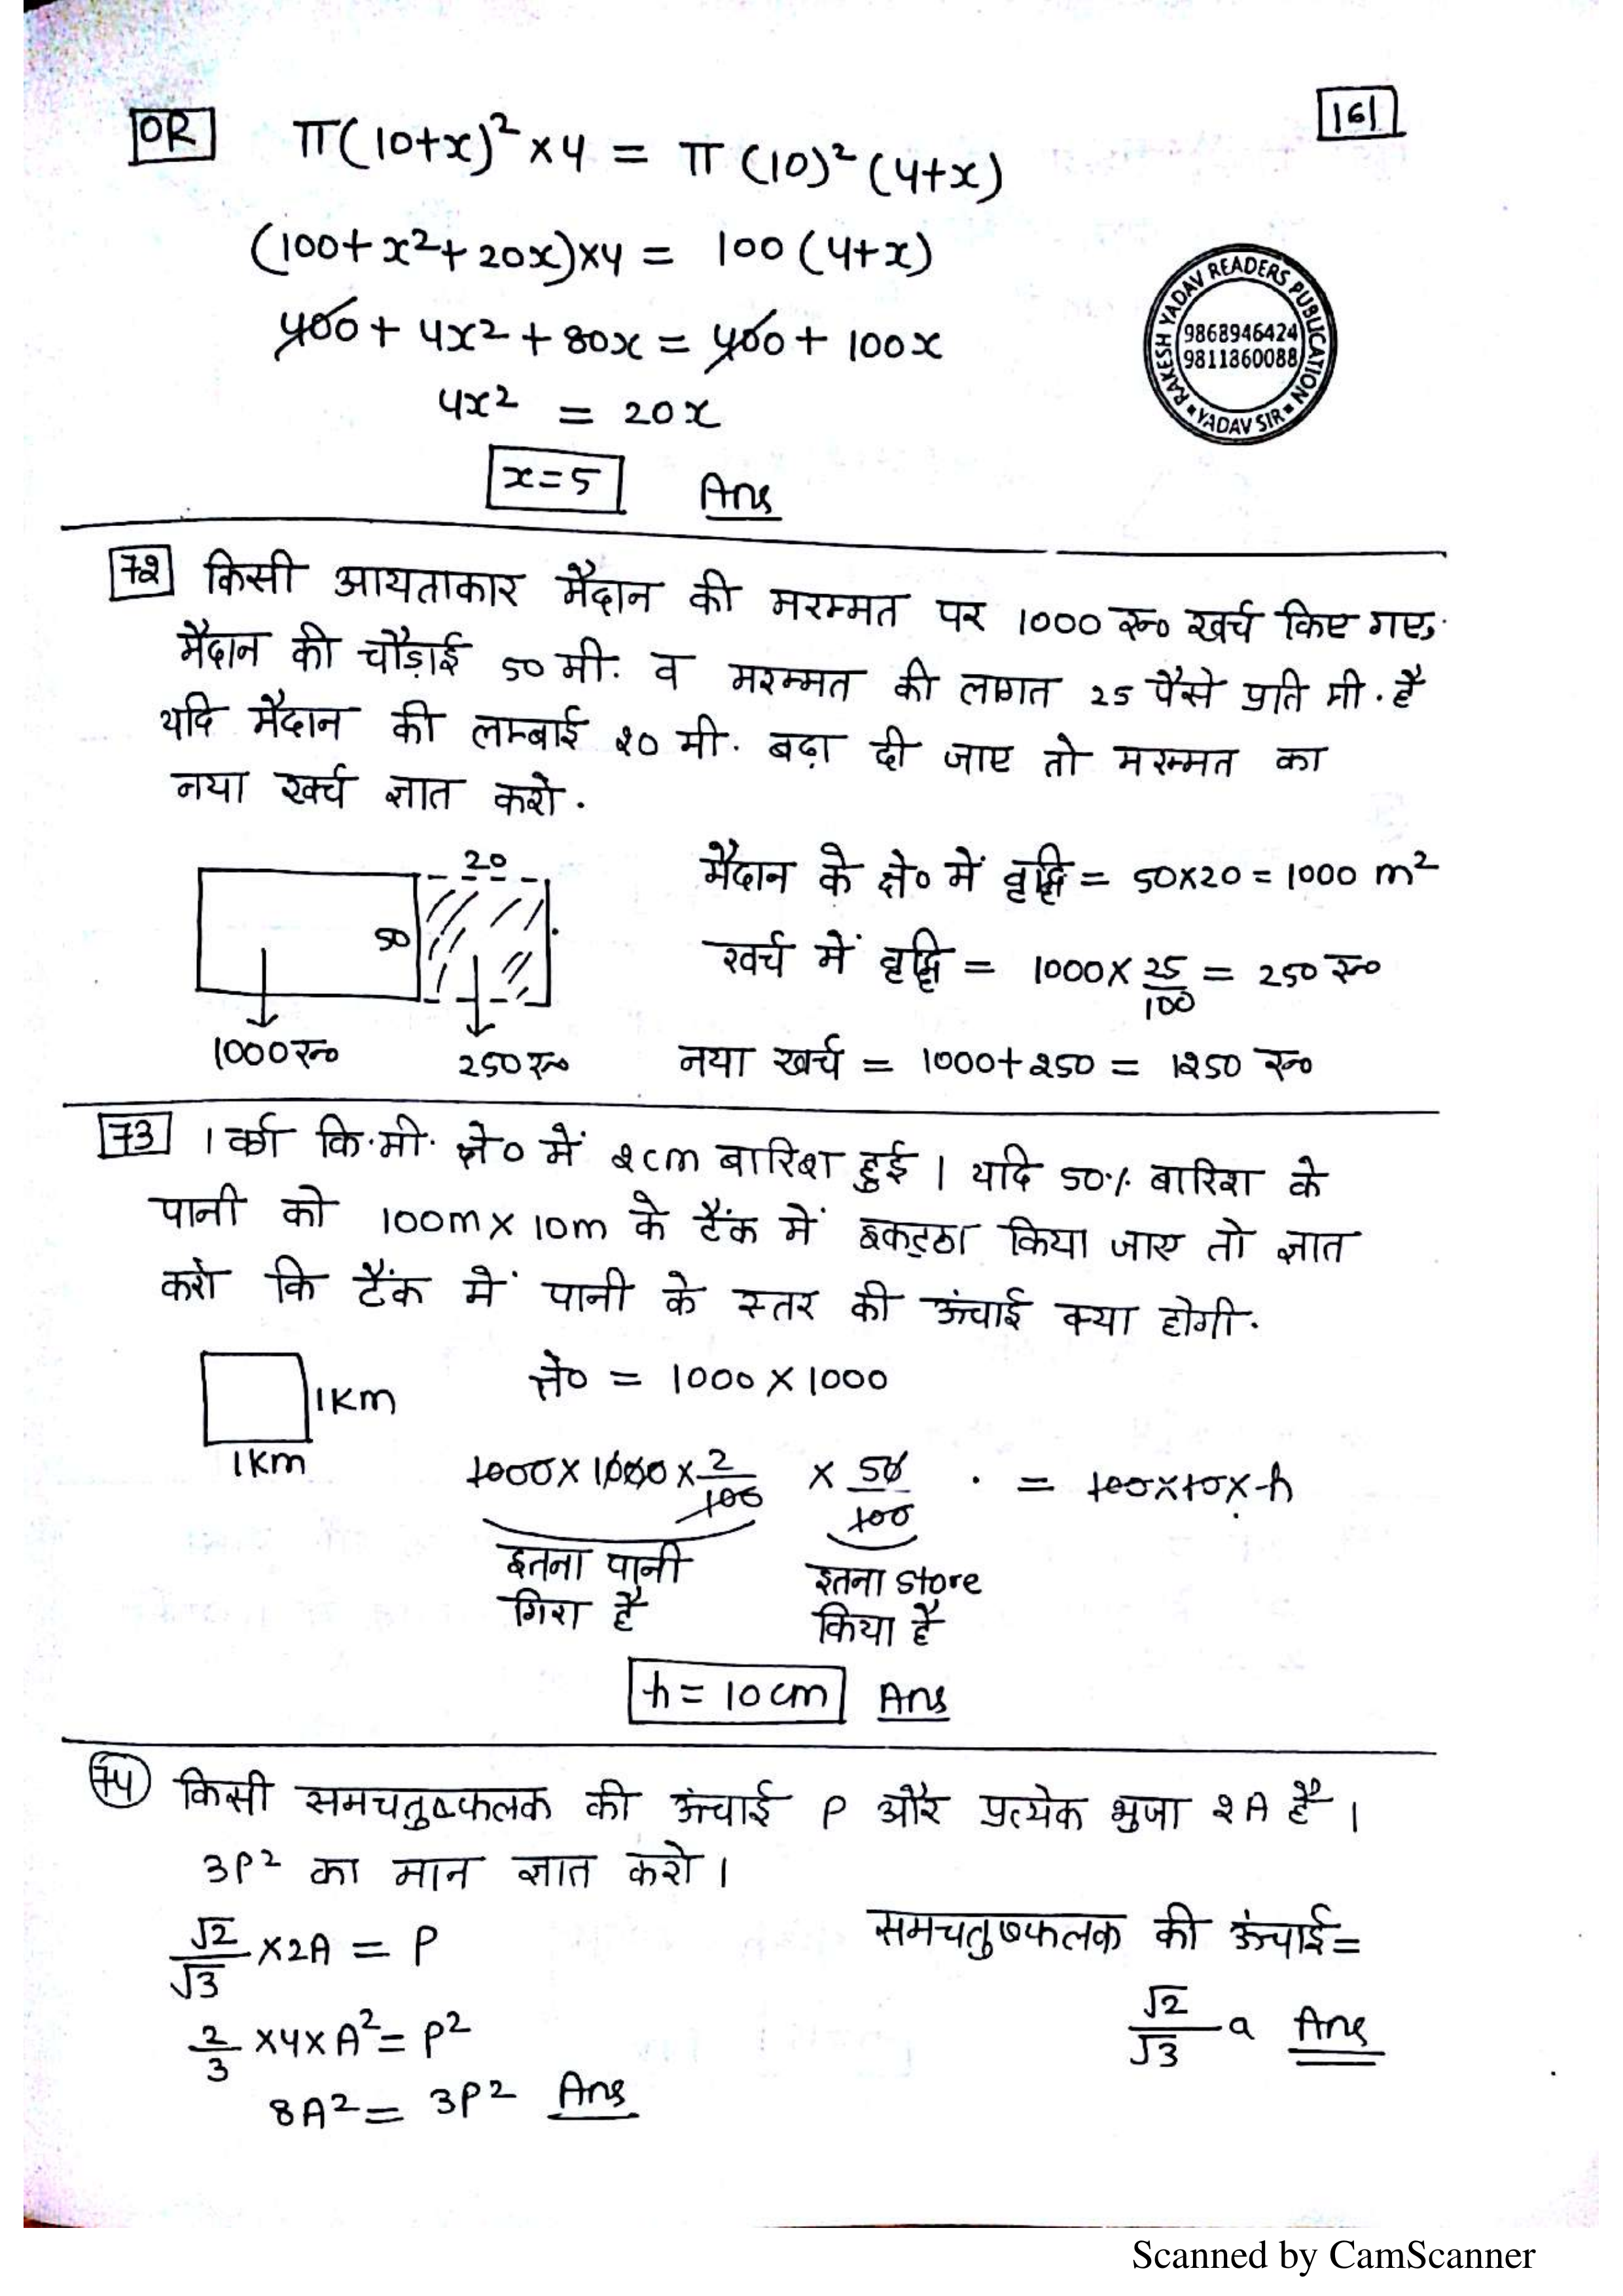 161
OR π(10+x)²×4 = π(10)²(4+x)
(100+x²+20x)×4 = 100(4+x)
400+4x²+80x = 400+100x
4x² = 20x
x=5 Ans
RAKESH YADAV READERS PUBLICATION
9868946424
9811860088
YADAV SIR
72 किसी आयताकार मैदान की मरम्मत पर 1000 रू० खर्च किए गए.
मैदान की चौड़ाई 50 मी. व मरम्मत की लागत 25 पैसे प्रति मी. है
यदि मैदान की लम्बाई 20 मी. बढ़ा दी जाए तो मरम्मत का
नया खर्च ज्ञात करो.
20
50
1000रू०
250रू०
मैदान के क्षे० में वृद्धि = 50×20 = 1000 m²
खर्च में वृद्धि = 1000× 25/100 = 250 रू०
नया खर्च = 1000+250 = 1250 रू०
73 1 वर्ग कि.मी. क्षे० में 2cm बारिश हुई । यदि 50% बारिश के
पानी को 100m×10m के टैंक में इकट्ठा किया जाए तो ज्ञात
करो कि टैंक में पानी के स्तर की ऊंचाई क्या होगी.
1Km
1Km
क्षे० = 1000×1000
1000×1000× 2/100 × 50/100 = 100×10×h
इतना पानी
गिरा है
इतना store
किया है
h=10cm Ans
74 किसी समचतुष्फलक की ऊंचाई P और प्रत्येक भुजा 2A है ।
3P² का मान ज्ञात करो ।
√2/√3 ×2A = P
2/3 ×4×A² = P²
8A² = 3P² Ans
समचतुष्फलक की ऊंचाई=
√2/√3 a Ans
Scanned by CamScanner